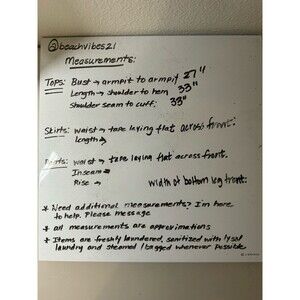 @beachvibes21
Measurements:
Tops: Bust → armpit to armpit 27"
Length → shoulder to hem 33"
Shoulder seam to cuff: 33"
Skirts: waist → tape laying flat across front.
Length →
Pants: waist → tape laying flat across front.
Inseam →
Rise → Width of bottom leg front:
* Need additional measurements? I'm here
to help. Please message
* All measurements are approximations
* Items are freshly laundered, sanitized with lysol
laundry and steamed / bagged whenever possible